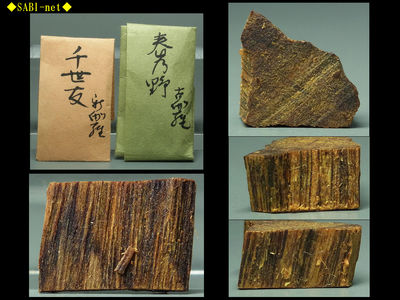 ◆SABI-net◆
千世友
新伽羅
春乃野
古伽羅